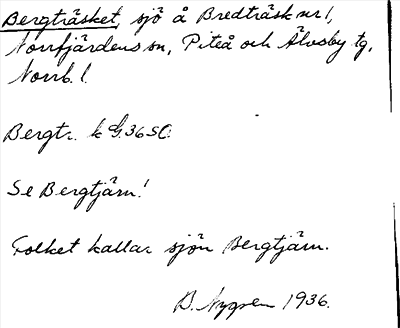 Bergträsket, sjö å Bredträsk nr 1,
Norrfjärdens sn, Piteå och Älvsby tg,
Norrb. l.
Bergtr. k G.36 SO.
Se Bergtjärn!
Folket kallar sjön Bergtjärn.
B. Nygren 1936.